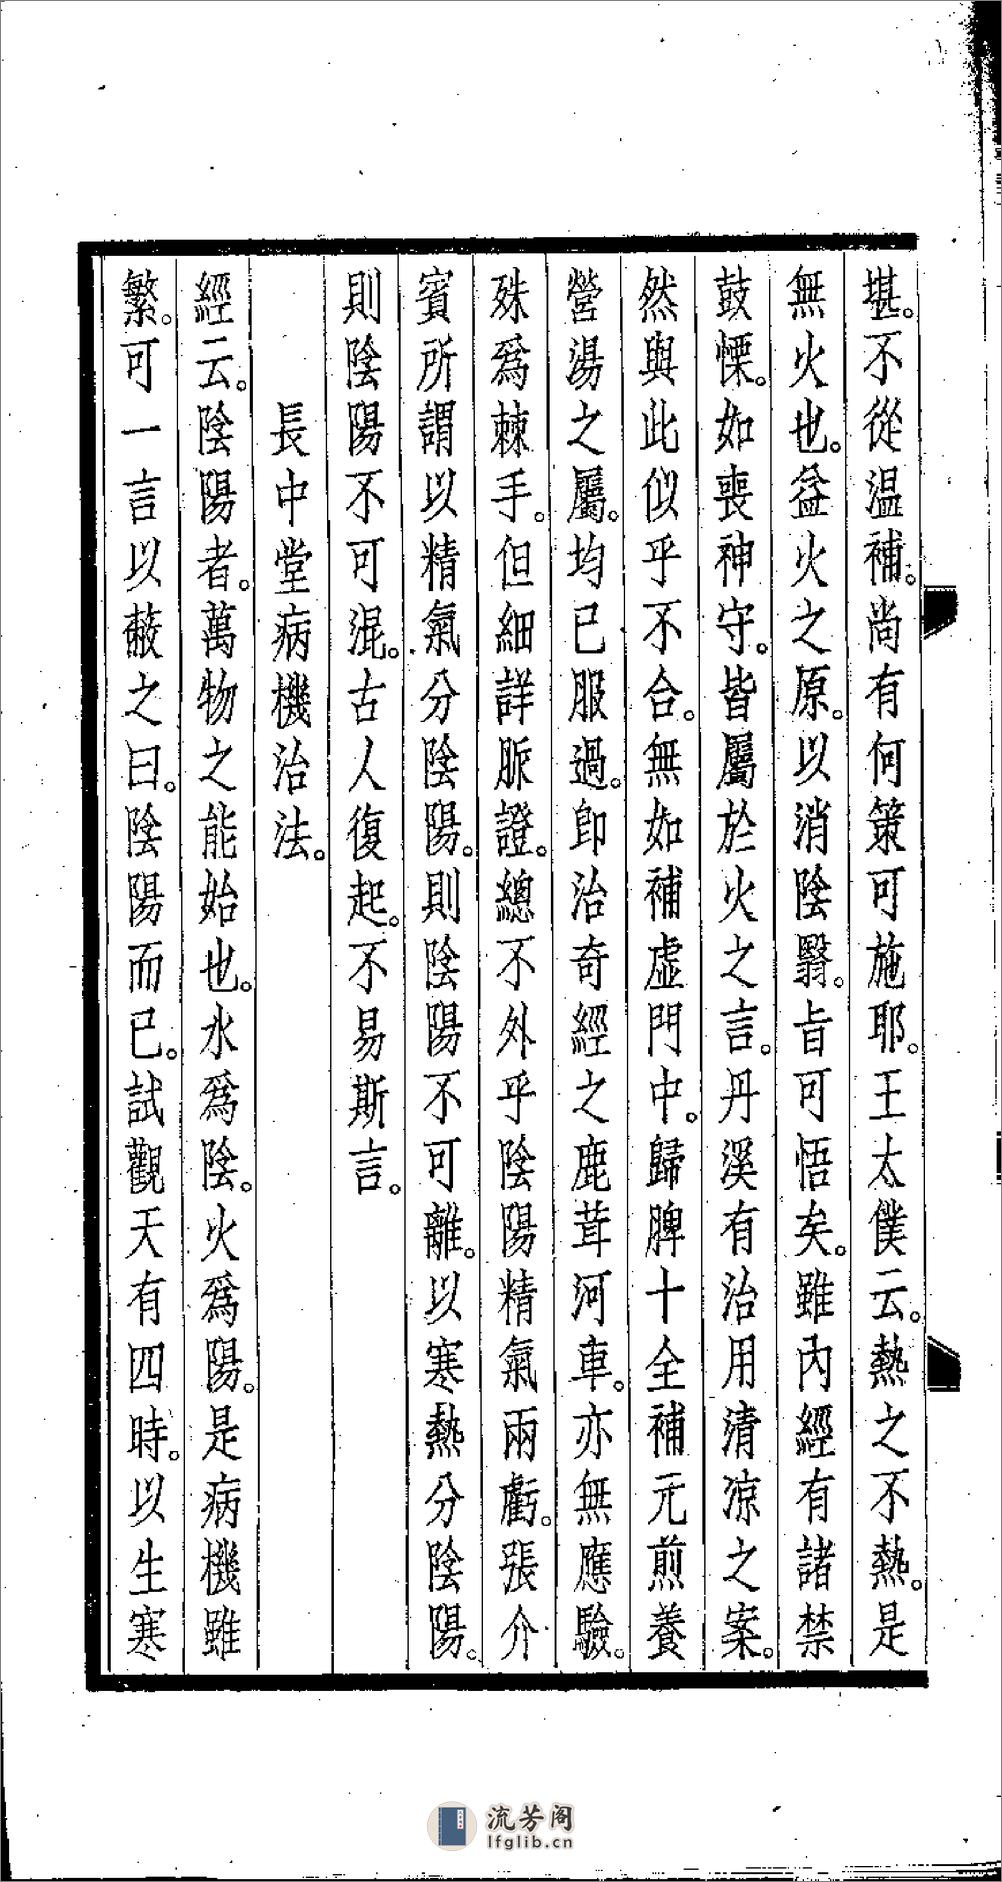 堪。不從温補。尚有何策可施耶。王太僕云。熱之不熱。是
無火也。益火之原。以消陰翳。旨可悟矣。雖內經有諸禁
鼓慄。如喪神守。皆屬於火之言。丹溪有治用清涼之案。
然與此似乎不合。無如補虛門中。歸脾十全補元煎養
營湯之屬。均已服過。卽治奇經之鹿茸河車。亦無應驗。
殊爲棘手。但細詳脈證。總不外乎陰陽精氣兩虧。張介
賓所謂以精氣分陰陽。則陰陽不可離。以寒熱分陰陽。
則陰陽不可混。古人復起。不易斯言。
長中堂病機治法。
經云。陰陽者。萬物之能始也。水爲陰。火爲陽。是病機雖
繁。可一言以蔽之曰。陰陽而已。試觀天有四時。以生寒
流芳阁
lfglib.cn